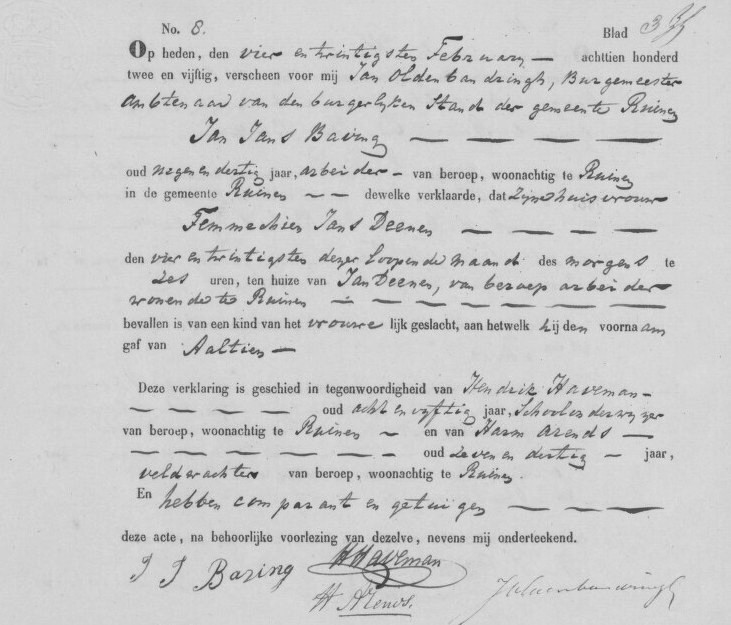 No. 8. Blad 3
Op heden, den vier en twintigsten Februarij — achttien honderd
twee en vijftig, verscheen voor mij Jan Oldenbandringh, Burgemeester
Ambtenaar van den burgerlyken Stand der gemeente Ruinen
Jan Jans Baring — — — — —
oud negen en dertig jaar, arbeider — van beroep, woonachtig te Ruinen
in de gemeente Ruinen — — dewelke verklaarde, dat zijne huisvrouw
Femmechien Jans Deenen — — — —
den vier en twintigsten dezer loopende maand des morgens te
zes uren, ten huize van Jan Deenen, van beroep arbeider
wonende te Ruinen — — — — — — — —
bevallen is van een kind van het vrouwe lijk geslacht, aan hetwelk hij den voornaam
gaf van Aaltien —
Deze verklaring is geschied in tegenwoordigheid van Hendrik Haveman —
— — — — oud acht en vyftig jaar, Schoolonderwyzer
van beroep, woonachtig te Ruinen — en van Harm Arends —
— — — — — — oud zeven en dertig — jaar,
veldwachter van beroep, woonachtig te Ruinen.
En hebben comparant en getuigen — — — —
deze acte, na behoorlijke voorlezing van dezelve, nevens mij onderteekend.
J J Baring HHaveman
H Arends.